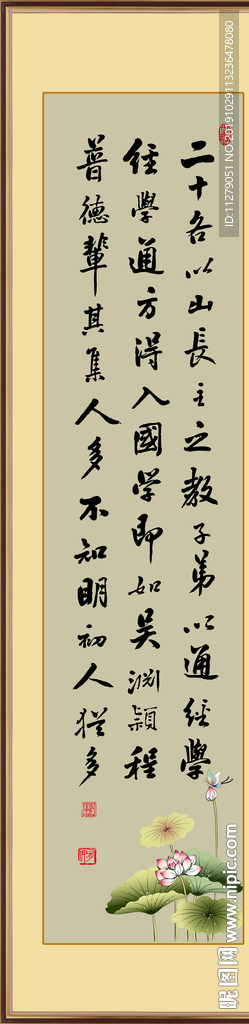 二十各以山長主之教子弟以通經學
經學通方得入國學即如吴淵頴程
普德輩其集人多不知明初人猶多
ID:11279051 NO:20191029113236478080
昵图网 www.nipic.com